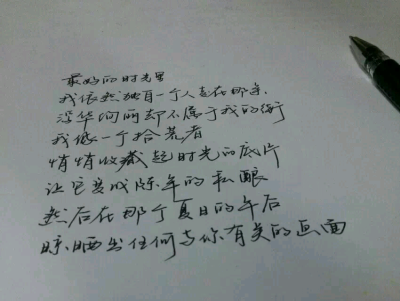 最好的时光里
我依然独自一个人走在那条
繁华何丽却不属于我的街
我像一个拾荒者
悄悄收藏起时光的底片
让它变成陈年的私酿
然后在那个夏日的午后
晾晒出任何与你有关的画面